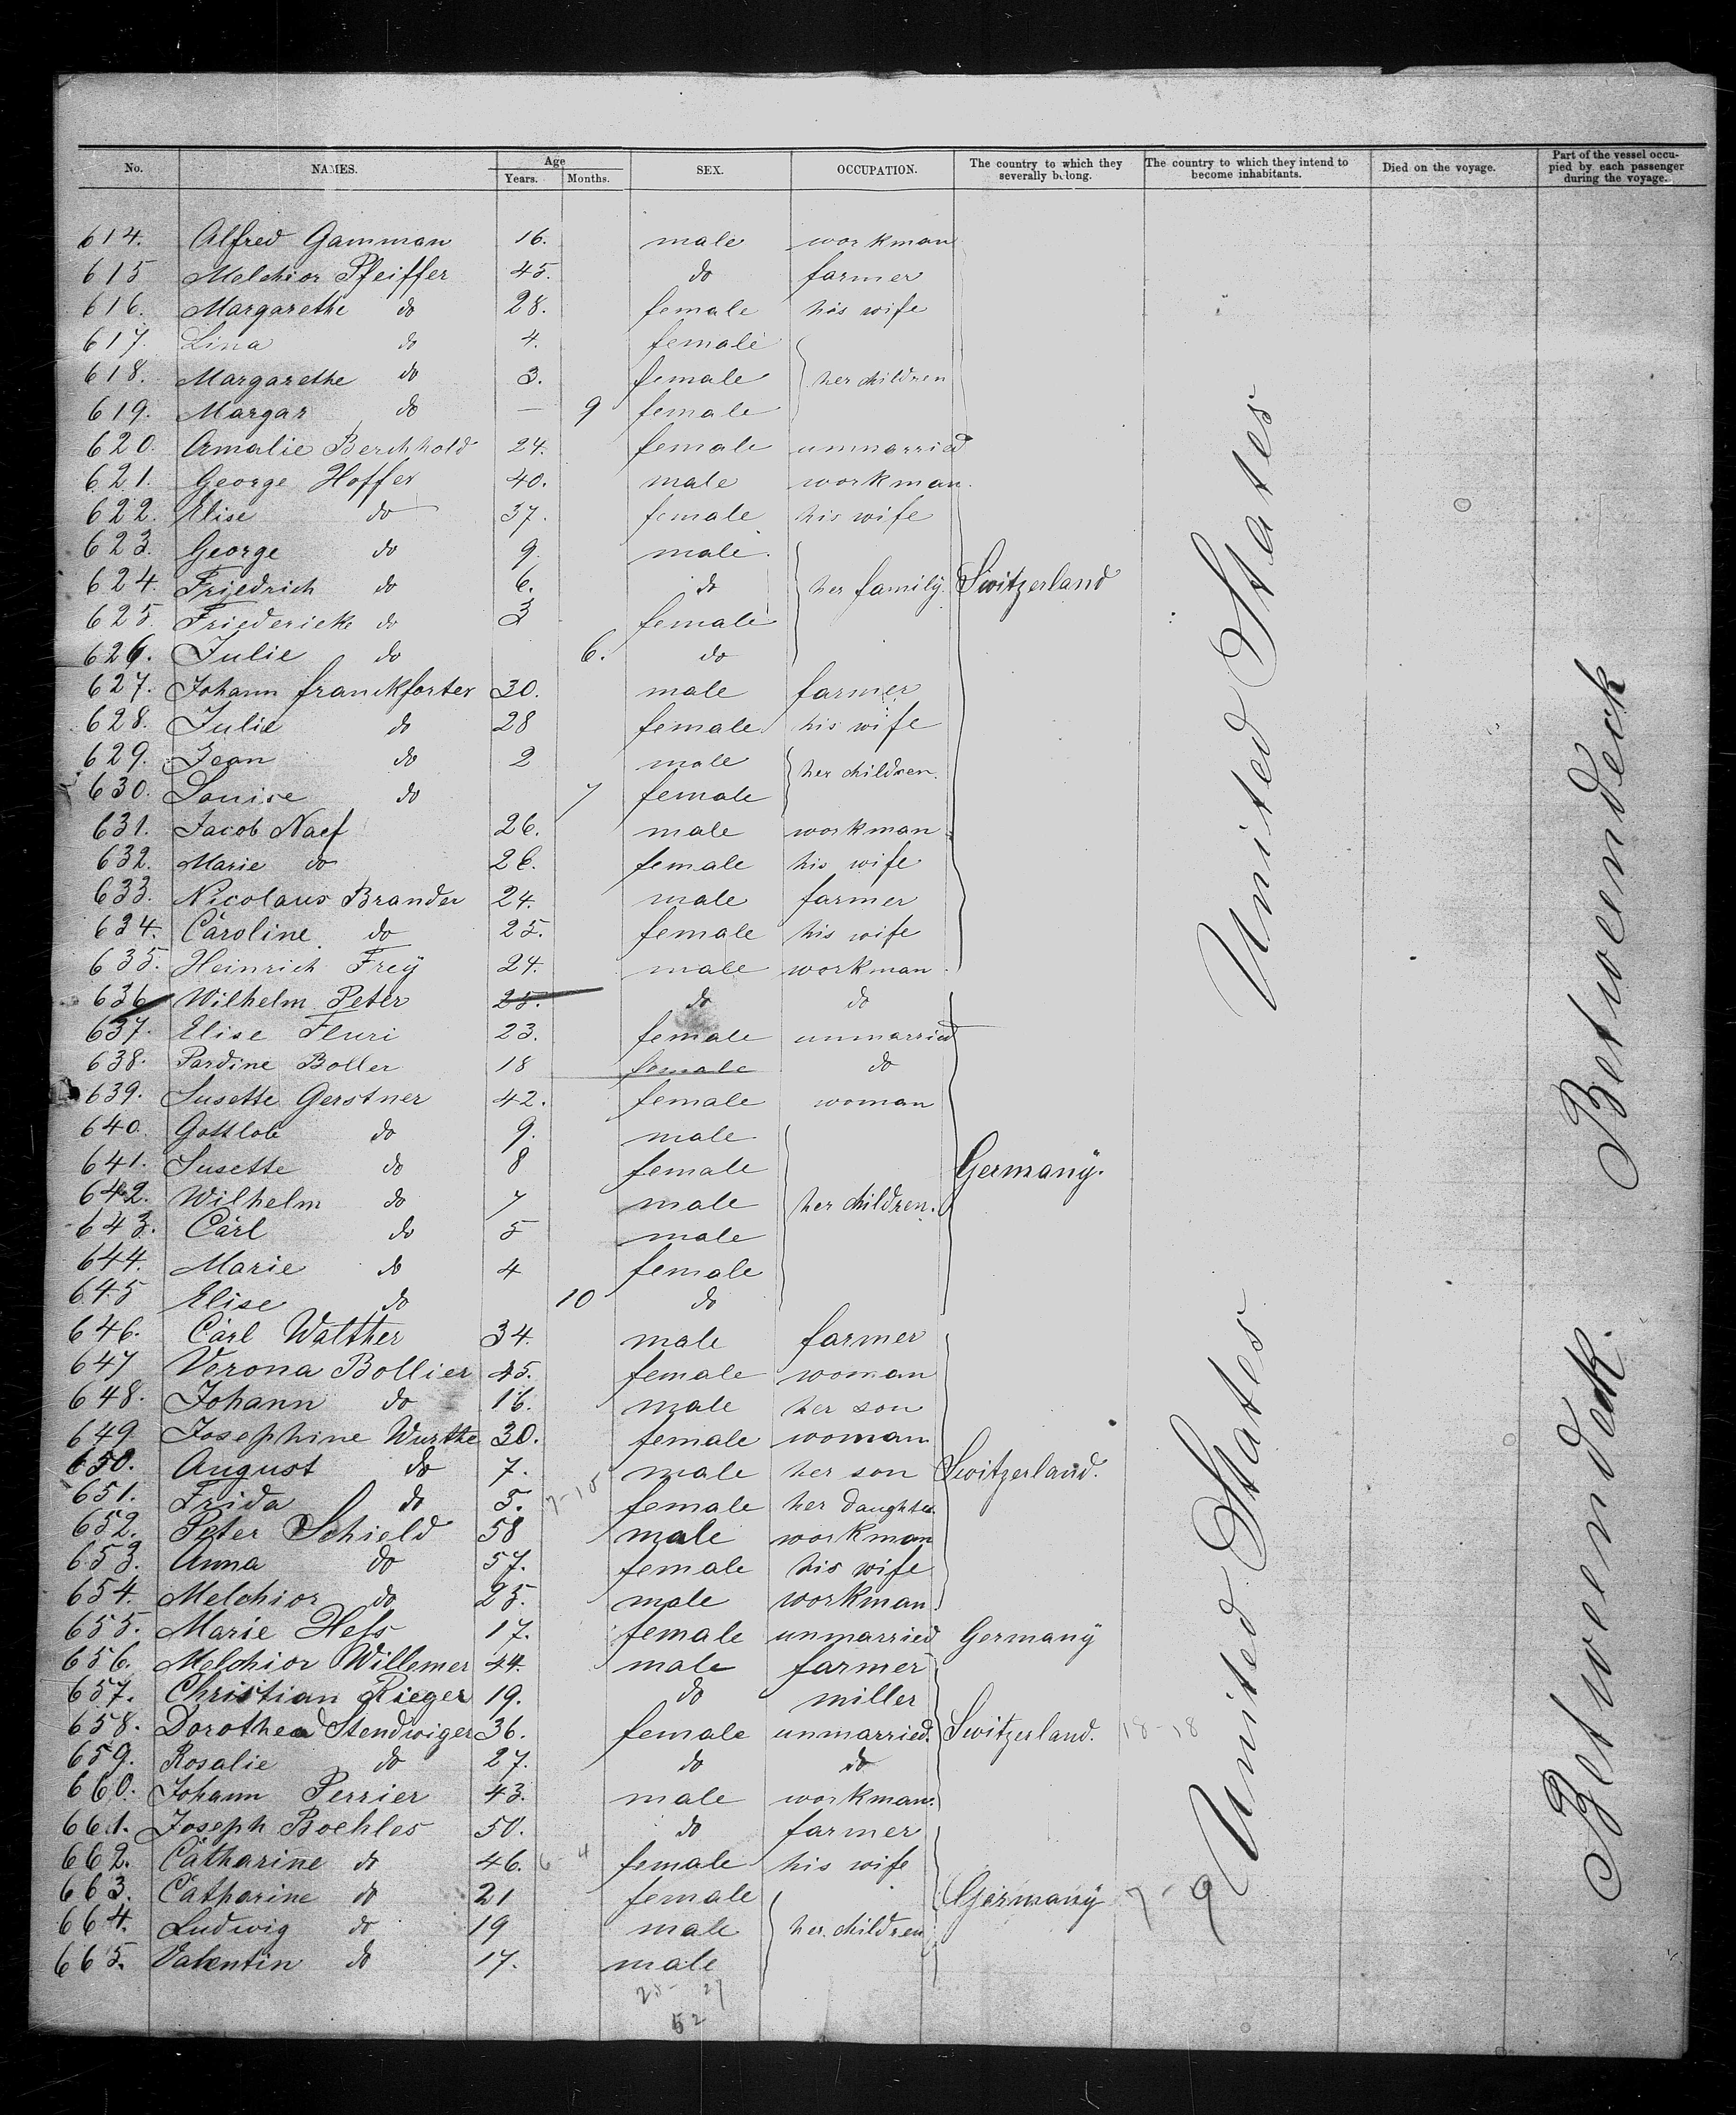 No. NAMES. Age Years. Months. SEX. OCCUPATION. The country to which they severally belong. The country to which they intend to become inhabitants. Died on the voyage. Part of the vessel occupied by each passenger during the voyage.
614. Alfred Gamman 16. male workman
615 Melchior Pfeiffer 45. do farmer
616. Margarethe do 28. female his wife
617. Lina do 4. female
618. Margarethe do 3. female her children
619. Margar do — 9 female
620. Amalie Berchhold 24. female unmarried
621. George Hoffer 40. male workman
622. Elise do 37. female his wife
623. George do 9. male
624. Friedrich do 6. do her family Switzerland
625. Friedericke do 3 female
626. Julie do 6. do
627. Johann franckforter 30. male farmer
628. Julie do 28 female his wife
629. Jean do 2 male her children.
630. Louise do 7 female
631. Jacob Naef 26. male workman
632. Marie do 26. female his wife
633. Nicolaus Brander 24. male farmer
634. Caroline do 25. female his wife
635. Heinrich Frey 24. male workman
636 Wilhelm Peter 25. do do
637. Elise Fluri 23. female unmarried
638. Pardine Boller 18 female do
639. Susette Gerstner 42. female woman
640. Gottlob do 9. male
641. Susette do 8 female Germany.
642. Wilhelm do 7 male her children.
643. Carl do 5 male
644. Marie do 4 female
645 Elise do 10 do
646. Carl Walther 34. male farmer
647 Verona Bollier 45. female woman
648. Johann do 16. male her son
649 Josephine Wurthe 30. female woman
650. August do 7. male her son Switzerland.
651. Frida do 5. 7-15 female her daughter
652. Peter Schield 58 male workman
653. Anna do 57. female his wife
654. Melchior do 25. male workman
655. Marie Hess 17. female unmarried Germany
656. Melchior Willemer 44. male farmer
657. Christian Rieger 19. do miller
658. Dorothea Stendwiger 36. female unmarried. Switzerland. 18-18
659. Rosalie do 27. do do
660. Johann Perrier 43. male workman.
661. Joseph Boehles 50. do farmer
662. Catharine do 46. 6-4 female his wife
663. Catharine do 21 female Germany 7-9
664. Ludwig do 19 male her children
665. Valentin do 17. male
25- 27
52
United States
United States
Betweendeck
Betweendeck.